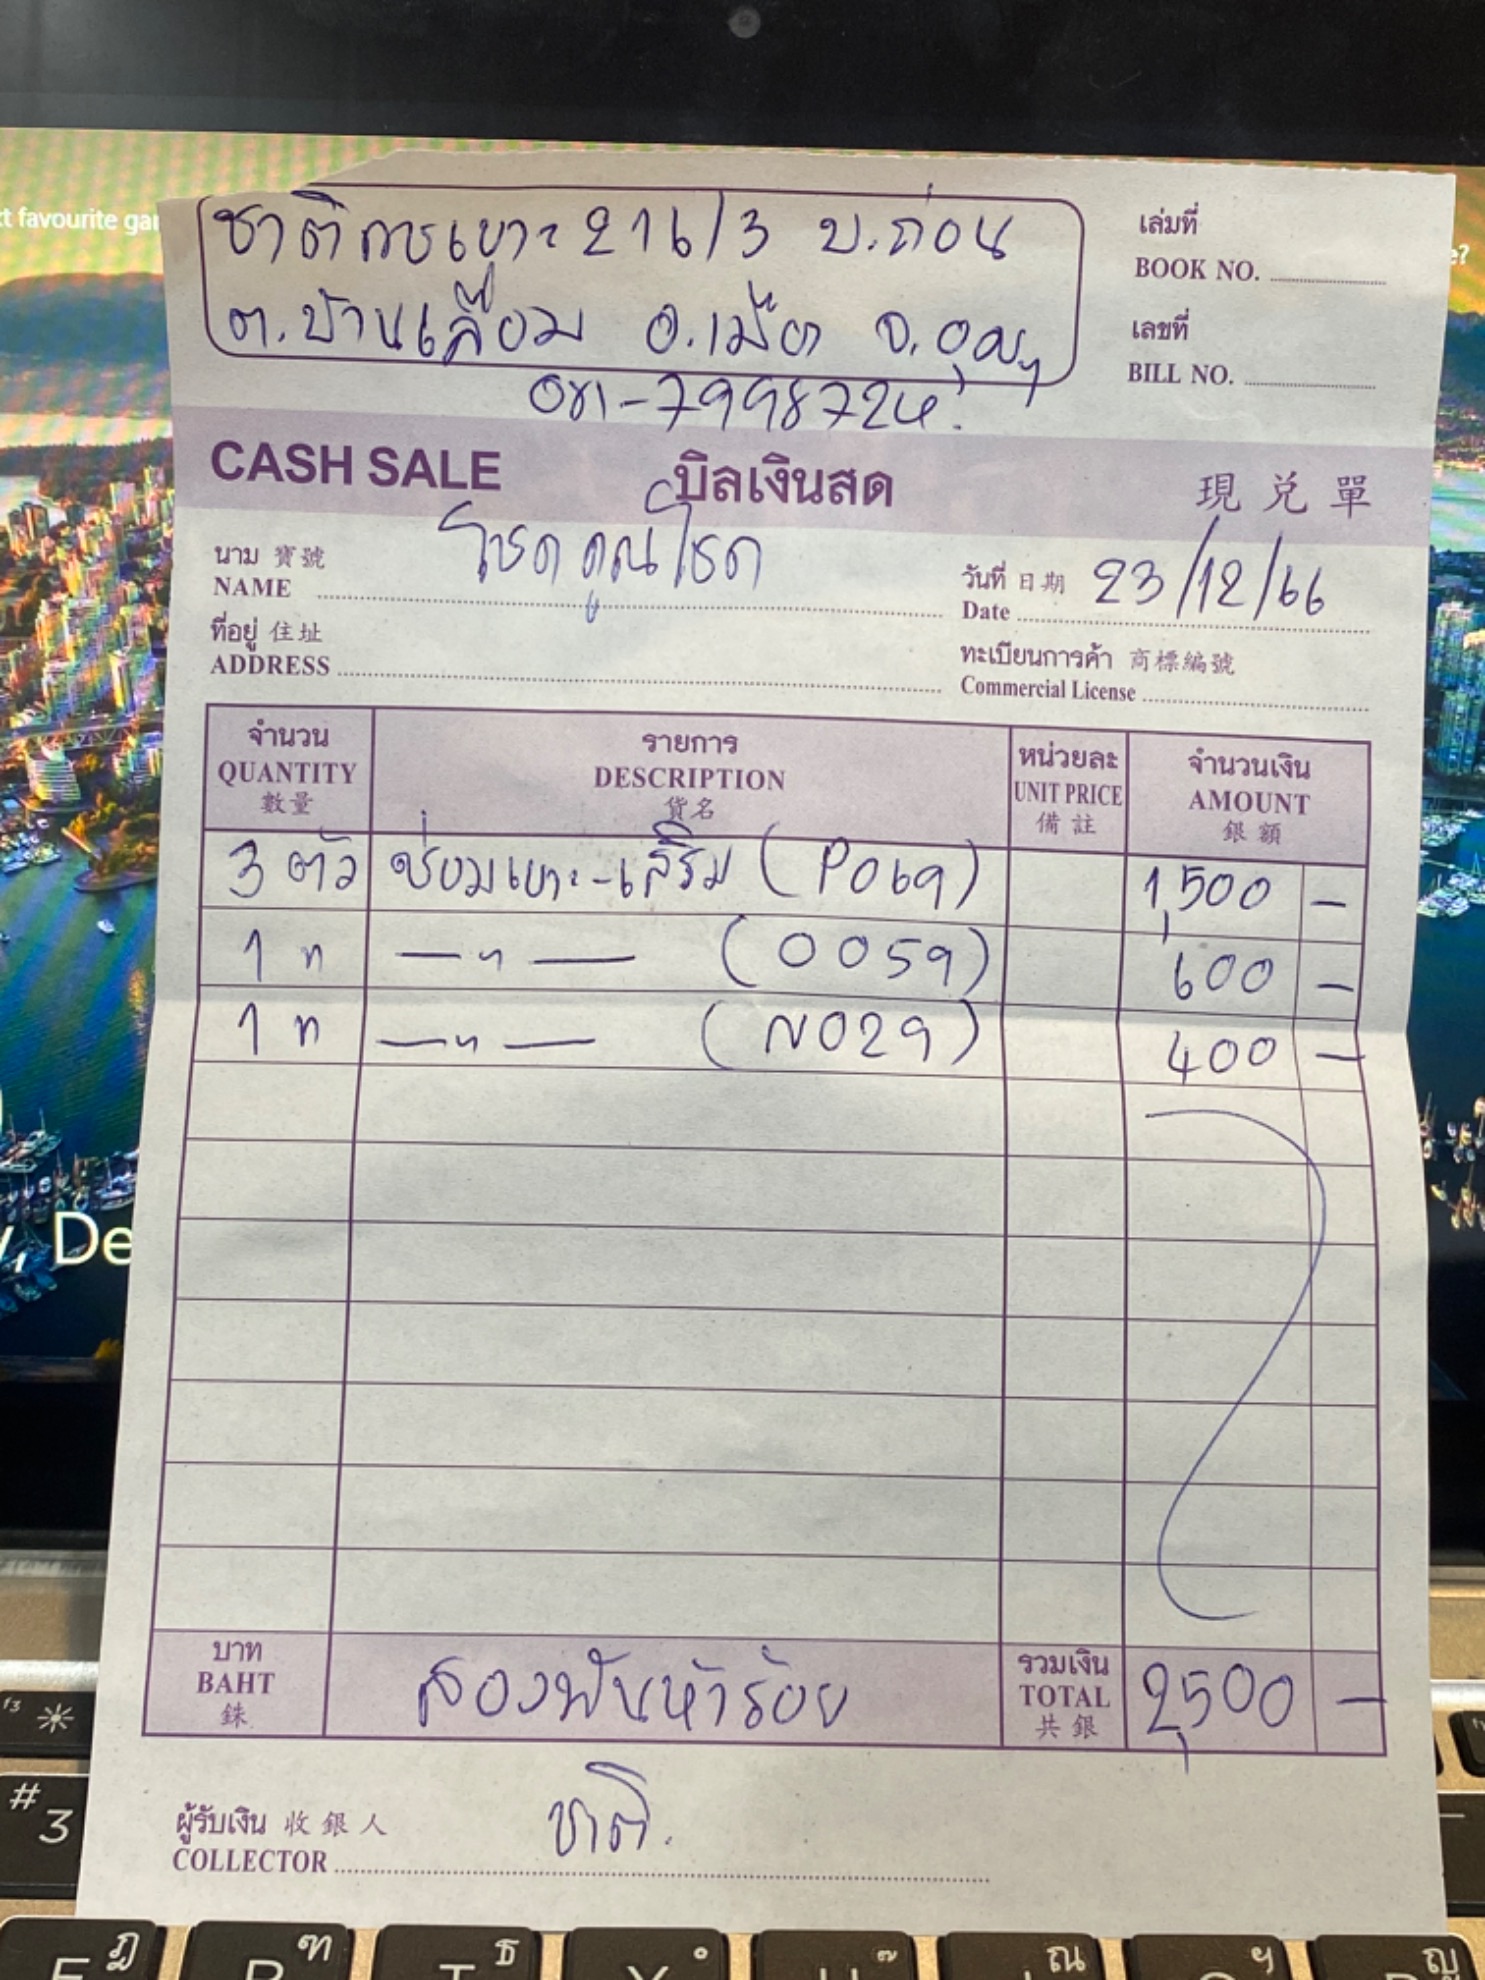 t favourite gar
ชาติการเบาะ 216/3 บ.ถ่อน
ต.บ้านเลื่อม อ.เมือง จ.อุดรฯ
081-7998724
เล่มที่
BOOK NO.
เลขที่
BILL NO.
CASH SALE บิลเงินสด 現兌單
นาม 寶號
NAME โชคคูณโชค
วันที่ 日期
Date 23/12/66
ที่อยู่ 住址
ADDRESS
ทะเบียนการค้า 商標編號
Commercial License
จำนวน รายการ หน่วยละ จำนวนเงิน
QUANTITY DESCRIPTION UNIT PRICE AMOUNT
數量 貨名 備註 銀額
3 ตัว ซ่อมเบาะ-เสริม (P069) 1,500 -
1 " —"— (0059) 600 -
1 " —"— (N029) 400 -
บาท รวมเงิน
BAHT สองพันห้าร้อย TOTAL 2,500 -
銖 共銀
ผู้รับเงิน 收銀人
COLLECTOR ชาติ.
y, De
f3
#
3
ฎ ฑ ธ ํ ๊ ณ ฯ ญ